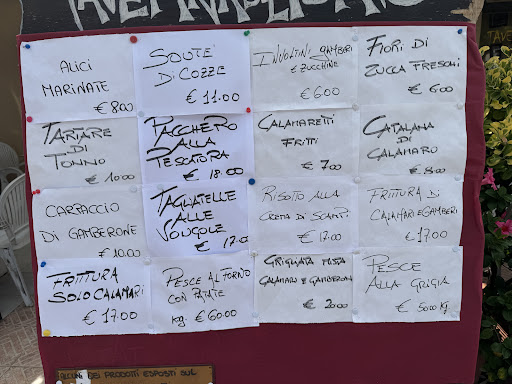 ALICI
MARINATE
€ 8.00
SOUTE'
DI COZZE
€ 11.00
INVOLTINI GAMBERI
E ZUCCHINE
€ 6.00
FIORI DI
ZUCCA FRESCHI
€ 6.00
TARTARE
DI
TONNO
€ 10.00
PACCHERO
ALLA
PESCATORA
€ 18.00
CALAMARETTI
FRITTI
€ 7.00
CATALANA
DI
CALAMARO
€ 8.00
CARPACCIO
DI GAMBERONE
€ 10.00
TAGLIATELLE
ALLE
VONGOLE
€ 17.00
RISOTTO ALLA
CREMA DI SCAMPI
€ 17.00
FRITTURA DI
CALAMARI E GAMBERI
€ 17.00
FRITTURA
SOLO CALAMARI
€ 17.00
PESCE AL FORNO
CON PATATE
KG. € 60.00
GRIGLIATA MISTA
CALAMARO E GAMBERONI
€ 20.00
PESCE
ALLA GRIGLIA
€ 50.00 KG
ALCUNI DEI PRODOTTI ESPOSTI SUL